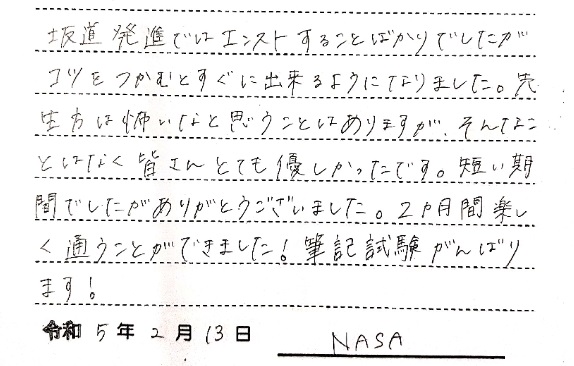 坂道発進ではエンストすることばかりでしたが
コツをつかむとすぐに出来るようになりました。先
生方は怖いなと思うことはありますが、そんなこ
とはなく皆さんとても優しかったです。短い期
間でしたがありがとうございました。2ヶ月間楽し
く通うことができました!筆記試験がんばり
ます!
令和5年2月13日
NASA